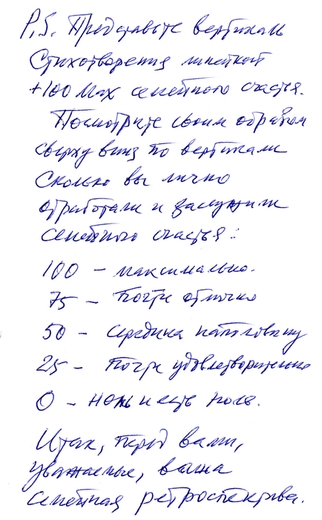 P.S. Представьте вертикаль
Стихотворения линейкой
+100 Max семейного счастья.
Посмотрите своим образом
сверху вниз по вертикали
Сколько вы лично
отработали и заслужили
семейного счастья:
100 – максимально.
75 – Почти отлично
50 – Середина наполовину
25 – Почти удовлетворительно
0 – ноль и есть ноль.
Итак, перед вами,
уважаемые, ваша
семейная ретроспектива.